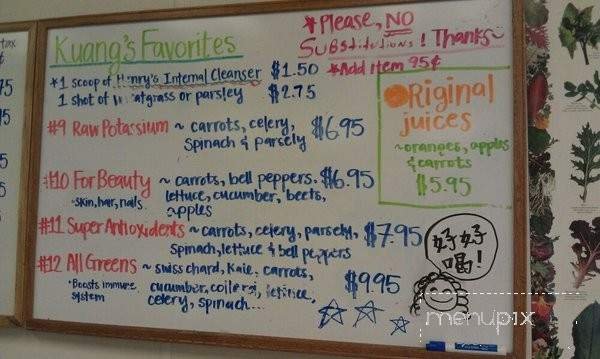 Kuang's Favorites
*Please, NO
Substitutions! Thanks~
*Add item 95¢
*1 scoop of Henry's Internal Cleanser $1.50
1 shot of wheatgrass or parsley $2.75
#9 Raw Potassium ~ carrots, celery, $6.95
spinach & parsely
#10 For Beauty ~ carrots, bell peppers. $6.95
*skin, hair, nails. lettuce, cucumber, beets,
apples
#11 Super Antioxidents ~ carrots, celery, parsely, $7.95
spinach, lettuce & bell peppers
#12 All Greens ~ swiss chard, kale, carrots, $9.95
*Boosts immune cucumber, lettuce,
system celery, spinach...
Original
juices
~oranges, apples
& carrots
$5.95
好好
喝!
menupix
tax
75
95
95